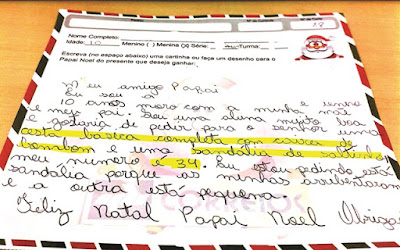 Nº da Carta
19
Nome Completo:
Idade: 10 Menino ( ) Menina (x) Série: Turma:
Escreva (no espaço abaixo) uma cartinha ou faça um desenho para o
Papai Noel do presente que deseja ganhar:
Meu amigo Papai
Eu sou
10 anos moro com a minha e
e meu pai. Sou uma aluna muito boa
e gotaria de pedir para o senhor uma
cesta básica completa com caixa de
bombom e uma sandália de saltinho
meu numero e 34. Eu estou pedindo está
sandália porque as minhas arrebentaram
e a outra está pequena.
Feliz Natal Papai Noel Obrigada
CORREIOS